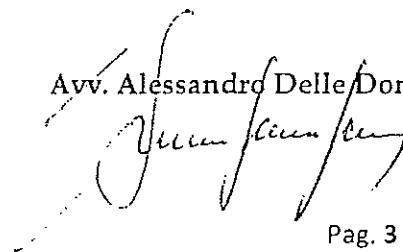 Avv. Alessandro Delle Don
Pag. 3